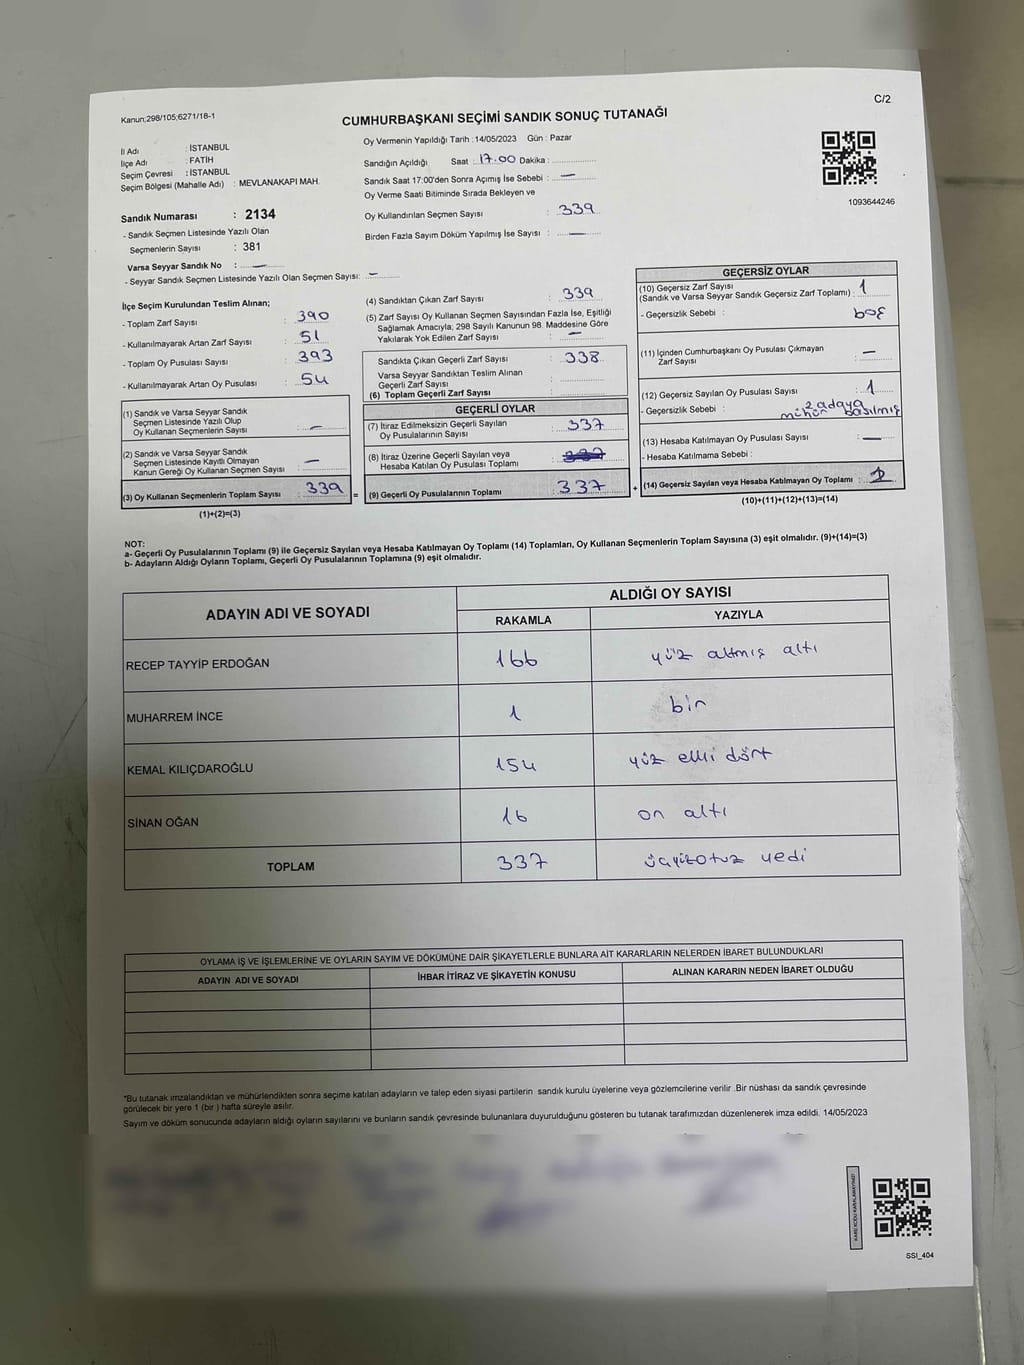 Kanun;298/105;6271/18-1
C/2
CUMHURBAŞKANI SEÇİMİ SANDIK SONUÇ TUTANAĞI
İl Adı : İSTANBUL
İlçe Adı : FATİH
Seçim Çevresi : İSTANBUL
Seçim Bölgesi (Mahalle Adı) : MEVLANAKAPI MAH.
Oy Vermenin Yapıldığı Tarih : 14/05/2023 Gün : Pazar
Sandığın Açıldığı Saat : 17.00 Dakika :
Sandık Saat 17:00'den Sonra Açımış İse Sebebi : —
Oy Verme Saati Bitiminde Sırada Bekleyen ve
Oy Kullandırılan Seçmen Sayısı : 339
Birden Fazla Sayım Döküm Yapılmış İse Sayısı : —
1093644246
Sandık Numarası : 2134
- Sandık Seçmen Listesinde Yazılı Olan
Seçmenlerin Sayısı : 381
Varsa Seyyar Sandık No : —
- Seyyar Sandık Seçmen Listesinde Yazılı Olan Seçmen Sayısı: —
İlçe Seçim Kurulundan Teslim Alınan;
- Toplam Zarf Sayısı : 390
- Kullanılmayarak Artan Zarf Sayısı : 51
- Toplam Oy Pusulası Sayısı : 393
- Kullanılmayarak Artan Oy Pusulası : 54
(1) Sandık ve Varsa Seyyar Sandık
Seçmen Listesinde Yazılı Olup
Oy Kullanan Seçmenlerin Sayısı : —
(2) Sandık ve Varsa Seyyar Sandık
Seçmen Listesinde Kayıtlı Olmayan
Kanun Gereği Oy Kullanan Seçmen Sayısı : —
(3) Oy Kullanan Seçmenlerin Toplam Sayısı : 339
(1)+(2)=(3)
=
(4) Sandıktan Çıkan Zarf Sayısı : 339
(5) Zarf Sayısı Oy Kullanan Seçmen Sayısından Fazla İse, Eşitliği
Sağlamak Amacıyla; 298 Sayılı Kanunun 98. Maddesine Göre
Yakılarak Yok Edilen Zarf Sayısı : —
Sandıkta Çıkan Geçerli Zarf Sayısı : 338
Varsa Seyyar Sandıktan Teslim Alınan
Geçerli Zarf Sayısı :
(6) Toplam Geçerli Zarf Sayısı
GEÇERLİ OYLAR
(7) İtiraz Edilmeksizin Geçerli Sayılan
Oy Pusulalarının Sayısı : 337
(8) İtiraz Üzerine Geçerli Sayılan veya
Hesaba Katılan Oy Pusulası Toplamı :
(9) Geçerli Oy Pusulalarının Toplamı : 337
+
GEÇERSİZ OYLAR
(10) Geçersiz Zarf Sayısı
(Sandık ve Varsa Seyyar Sandık Geçersiz Zarf Toplamı) : 1
- Geçersizlik Sebebi : boş
(11) İçinden Cumhurbaşkanı Oy Pusulası Çıkmayan
Zarf Sayısı : —
(12) Geçersiz Sayılan Oy Pusulası Sayısı : 1
- Geçersizlik Sebebi : 2 adaya
mühür basılmış
(13) Hesaba Katılmayan Oy Pusulası Sayısı : —
- Hesaba Katılmama Sebebi :
(14) Geçersiz Sayılan veya Hesaba Katılmayan Oy Toplamı : 2
(10)+(11)+(12)+(13)=(14)
NOT:
a- Geçerli Oy Pusulalarının Toplamı (9) ile Geçersiz Sayılan veya Hesaba Katılmayan Oy Toplamı (14) Toplamları, Oy Kullanan Seçmenlerin Toplam Sayısına (3) eşit olmalıdır. (9)+(14)=(3)
b- Adayların Aldığı Oyların Toplamı, Geçerli Oy Pusulalarının Toplamına (9) eşit olmalıdır.
ADAYIN ADI VE SOYADI ALDIĞI OY SAYISI
RAKAMLA YAZIYLA
RECEP TAYYİP ERDOĞAN 166 yüz altmış altı
MUHARREM İNCE 1 bir
KEMAL KILIÇDAROĞLU 154 yüz elli dört
SİNAN OĞAN 16 on altı
TOPLAM 337 üçyüzotuz yedi
OYLAMA İŞ VE İŞLEMLERİNE VE OYLARIN SAYIM VE DÖKÜMÜNE DAİR ŞİKAYETLERLE BUNLARA AİT KARARLARIN NELERDEN İBARET BULUNDUKLARI
ADAYIN ADI VE SOYADI İHBAR İTİRAZ VE ŞİKAYETİN KONUSU ALINAN KARARIN NEDEN İBARET OLDUĞU
*Bu tutanak imzalandıktan ve mühürlendikten sonra seçime katılan adayların ve talep eden siyasi partilerin sandık kurulu üyelerine veya gözlemcilerine verilir .Bir nüshası da sandık çevresinde
görülecek bir yere 1 (bir ) hafta süreyle asılır.
Sayım ve döküm sonucunda adayların aldığı oyların sayılarını ve bunların sandık çevresinde bulunanlara duyurulduğunu gösteren bu tutanak tarafımızdan düzenlenerek imza edildi. 14/05/2023
KARE KODU KARALAMAYINIZ!
SSI_404